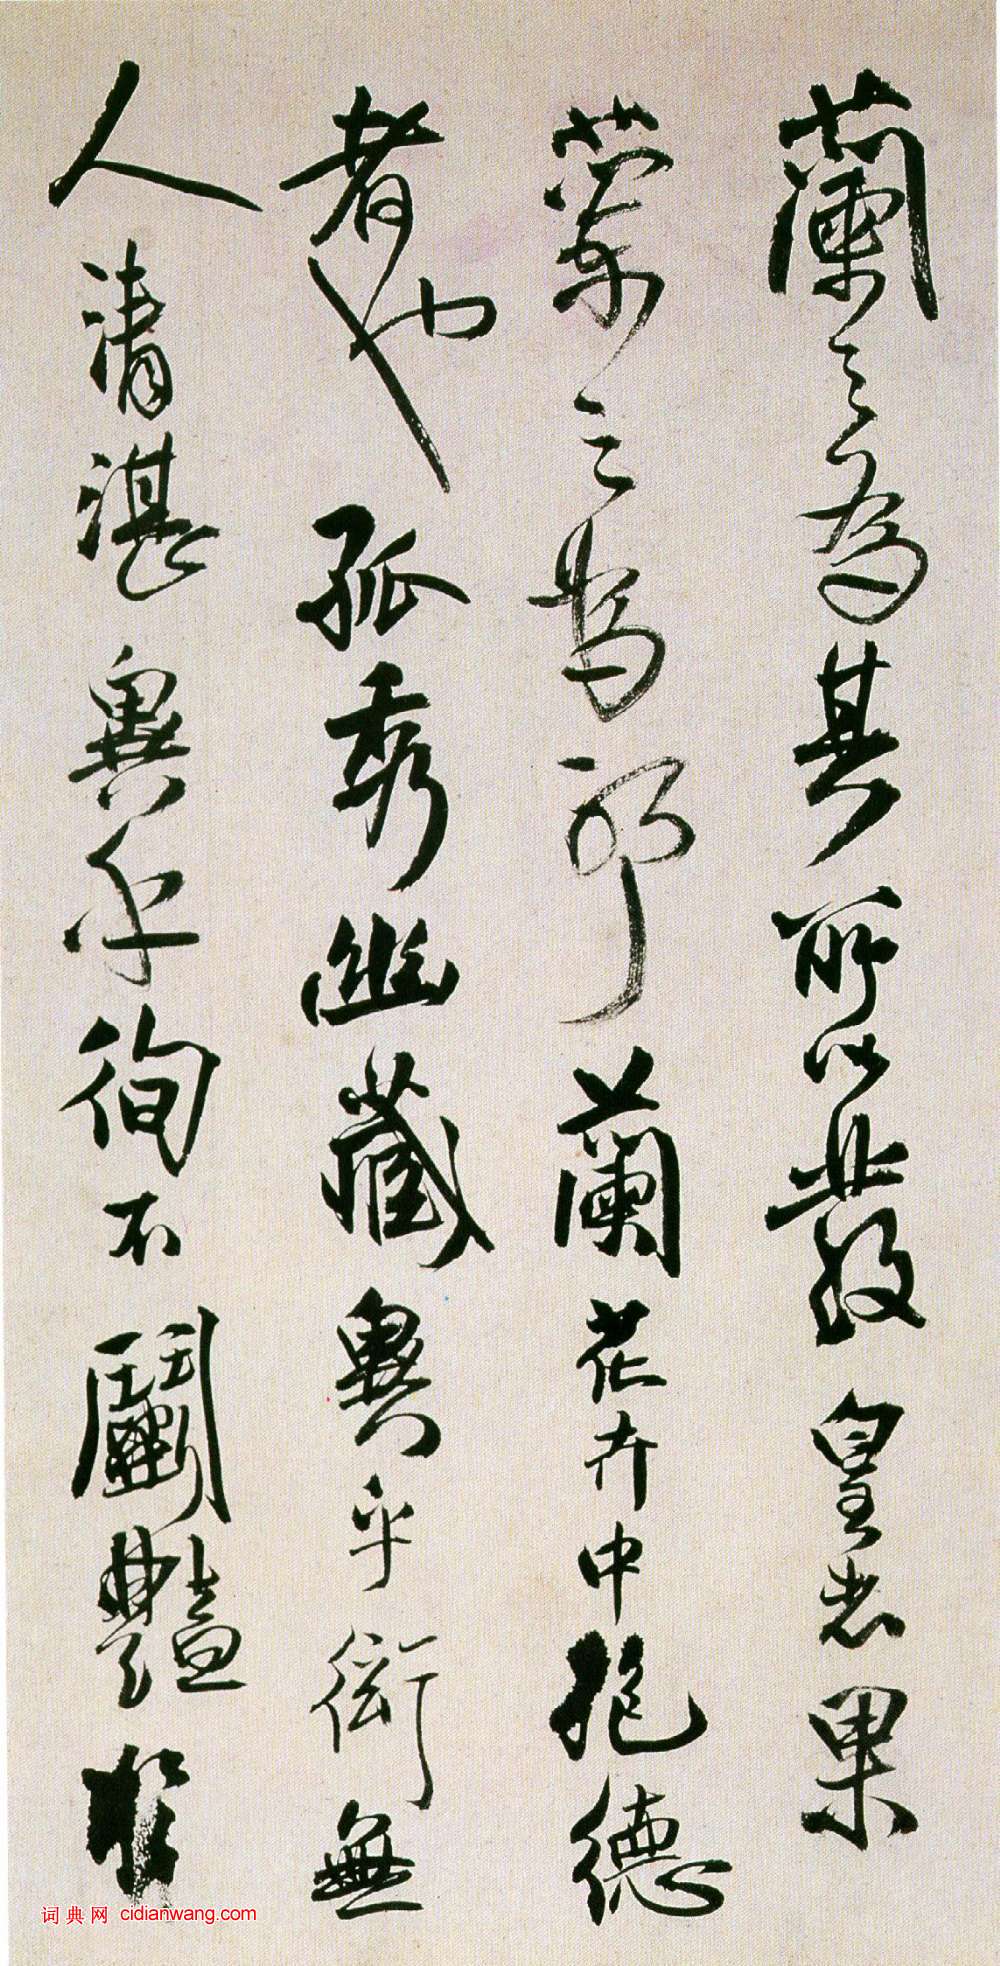 蘭之為其所以發皇者果
之耶蘭花卉中抱德
者也孤秀幽藏異乎衒無
人清湛異乎徇不鬭艷
词典网 cidianwang.com